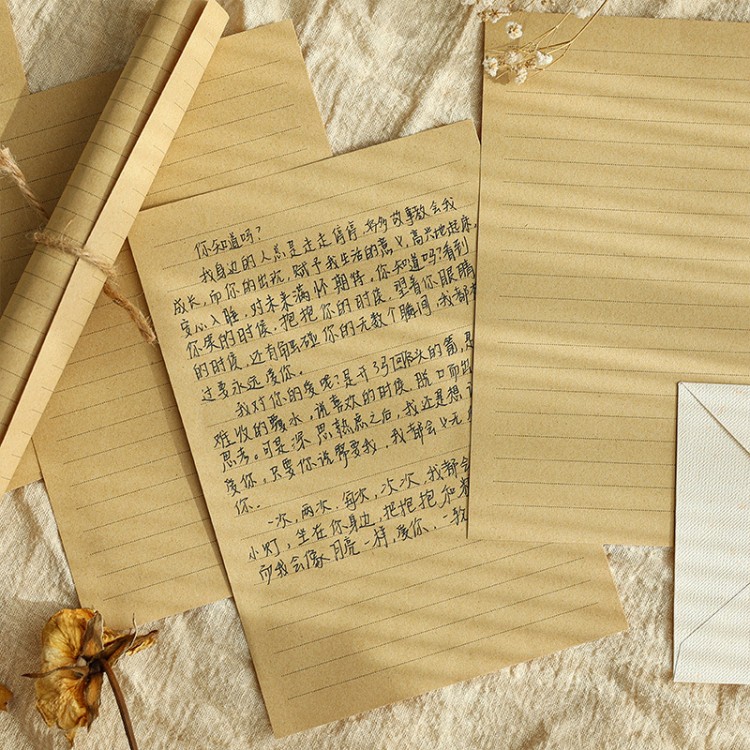 你知道吗?
我身边的人总是走走停停,好多故事教会我
成长,而你的出现,赋予我生活的意义,高兴地起床,
安心入睡,对未来满怀期待,你知道吗?看到
你笑的时候,抱抱你的时候,望着你眼睛
的时候,还有触碰你的无数个瞬间,我都
过要永远爱你。
我对你的爱呢?是开弓没有回头的箭,是
难收的覆水,说喜欢的时候,脱口而出
思考。可是深思熟虑之后,我还是想
爱你,只要你说需要我,我都会义无
你。
一次,两次,每次,次次,我都会
小灯,坐在你身边,把抱抱和
而我会像月亮一样,爱你,一致